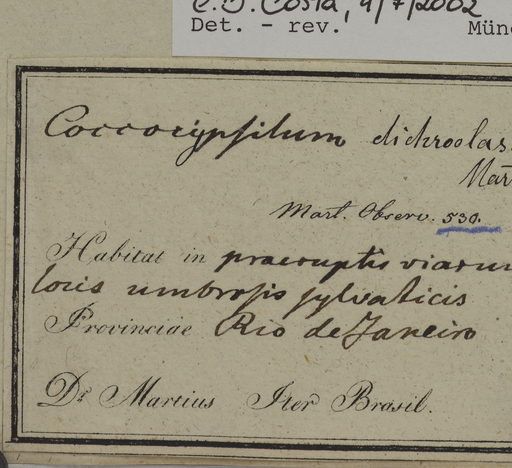 C. B. Costa, 4/7/2002
Det. - rev. Mün
Coccocypsilum dichroolas
Mart
Mart. Observ. 530.
Habitat in praeruptis viarum
locis umbrosis sylvaticis
Provinciae Rio de Janeiro
Dr Martius Iter Brasil.